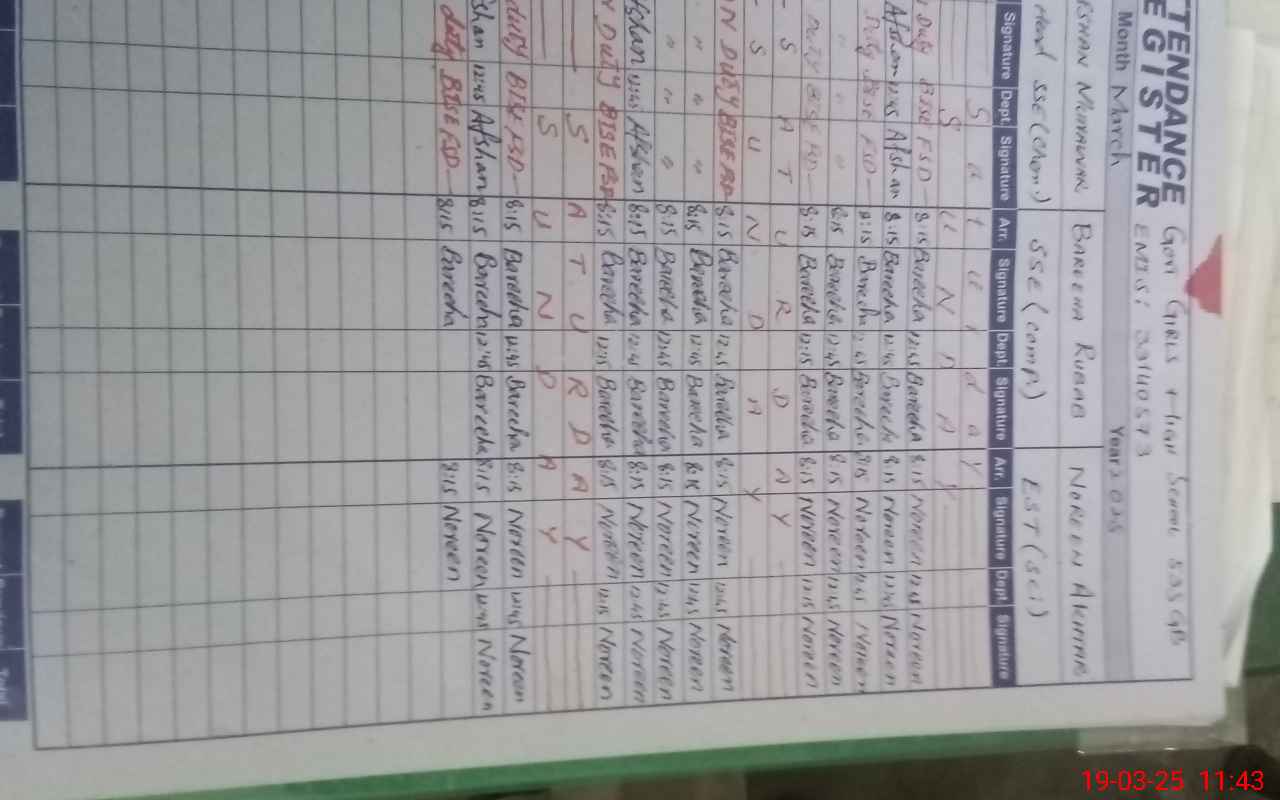 TTENDANCE Govt Girls High School 535 GB
EGISTER EMIS: 33140573
Month March Year 2025
SHAN MUNAWAR BAREEHA RUBAB NOREEN AKHTAR
Head SSE(Chem) SSE (comp.) EST (Sci)
Signature Dept. Signature Arr. Signature Dept. Signature Arr. Signature Dept Signature
S a t u r d a y
S U N D A Y
Duty BISE FSD 8:15 Bareeha 12:45 Bareeha 8:15 Noreen 12:45 Noreen
Afshan 12:45 Afshan 8:15 Bareeha 12:45 Bareeha 8:15 Noreen 12:45 Noreen
Duty BISE FSD 8:15 Bareeha 12:45 Bareeha 8:15 Noreen 12:45 Noreen
" " " 8:15 Bareeha 12:45 Bareeha 8:15 Noreen 12:45 Noreen
Duty BISE FSD 8:15 Bareeha 12:15 Bareeha 8:15 Noreen 12:15 Noreen
S A T U R D A Y
S U N D A Y
N DUTY BISE FSD 8:15 Bareeha 12:45 Bareeha 8:15 Noreen 12:45 Noreen
" " " 8:15 Bareeha 12:45 Bareeha 8:15 Noreen 12:45 Noreen
" " " 8:15 Bareeha 12:45 Bareeha 8:15 Noreen 12:45 Noreen
Afshan 12:45 Afshan 8:15 Bareeha 12:45 Bareeha 8:15 Noreen 12:45 Noreen
N DUTY BISE FSD 8:15 Bareeha 12:15 Bareeha 8:15 Noreen 12:15 Noreen
S A T U R D A Y
S U N D A Y
duty BISE FSD 8:15 Bareeha 12:45 Bareeha 8:15 Noreen 12:45 Noreen
shan 12:45 Afshan 8:15 Bareeha 12:45 Bareeha 8:15 Noreen 12:45 Noreen
duty BISE FSD 8:15 Bareeha 8:15 Noreen
Total
19-03-25 11:43